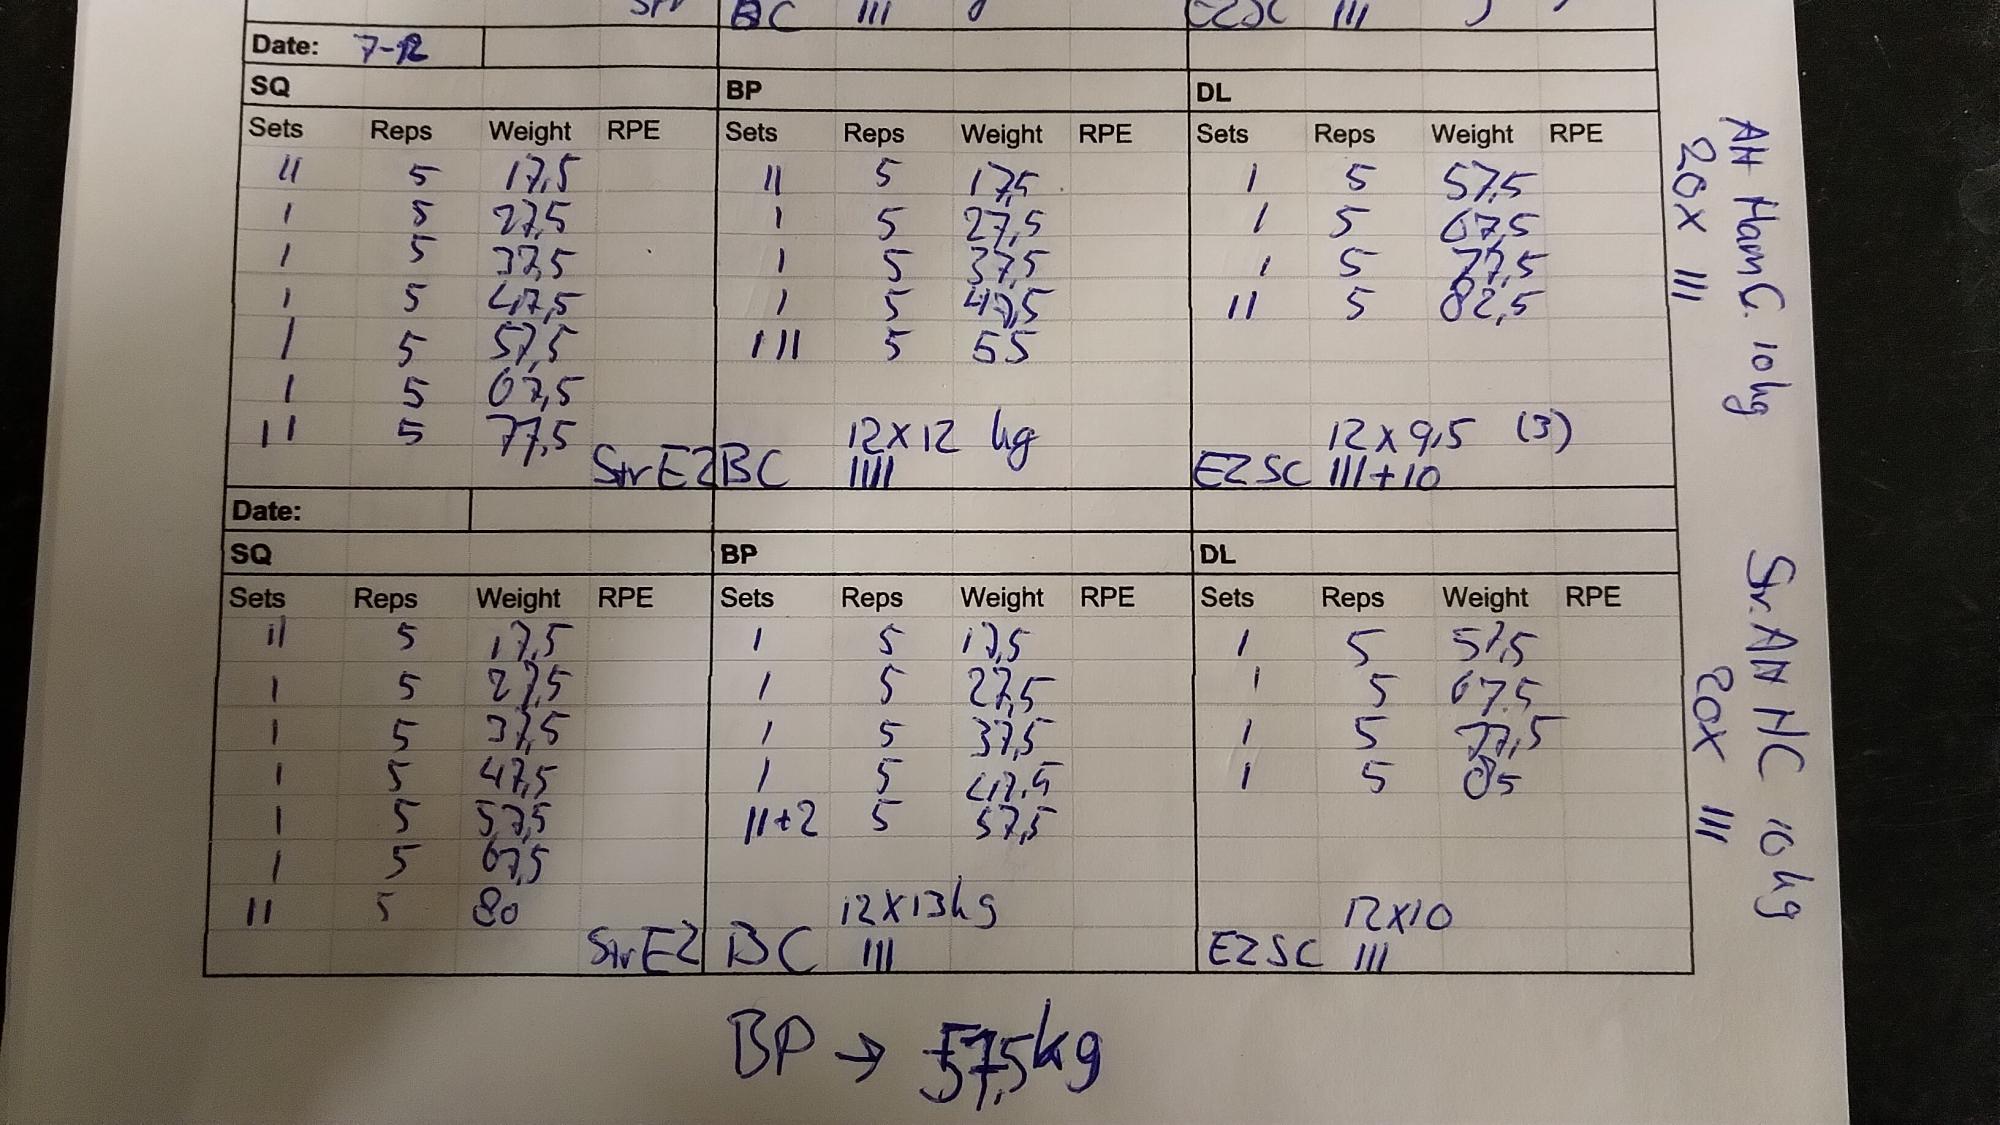 BC III EZSC III
Date: 7-12
SQ BP DL
Sets Reps Weight RPE Sets Reps Weight RPE Sets Reps Weight RPE
II 5 17,5 II 5 17,5 I 5 57,5
I 5 27,5 I 5 27,5 I 5 67,5
I 5 37,5 I 5 37,5 I 5 77,5
I 5 47,5 I 5 47,5 II 5 82,5
I 5 57,5 III 5 55
I 5 67,5
II 5 77,5 12x12 kg 12x9,5 (3)
Str EZ BC IIII EZSC III+10
Date:
SQ BP DL
Sets Reps Weight RPE Sets Reps Weight RPE Sets Reps Weight RPE
II 5 17,5 I 5 17,5 I 5 57,5
I 5 27,5 I 5 27,5 I 5 67,5
I 5 37,5 I 5 37,5 I 5 77,5
I 5 47,5 I 5 47,5 I 5 85
I 5 57,5 II+2 5 57,5
I 5 67,5
II 5 80 12x13kg 12x10
Str EZ BC III EZSC III
BP → 57,5kg
AH Ham C. 10kg
20x III
Str. AH HC 10kg
20x III